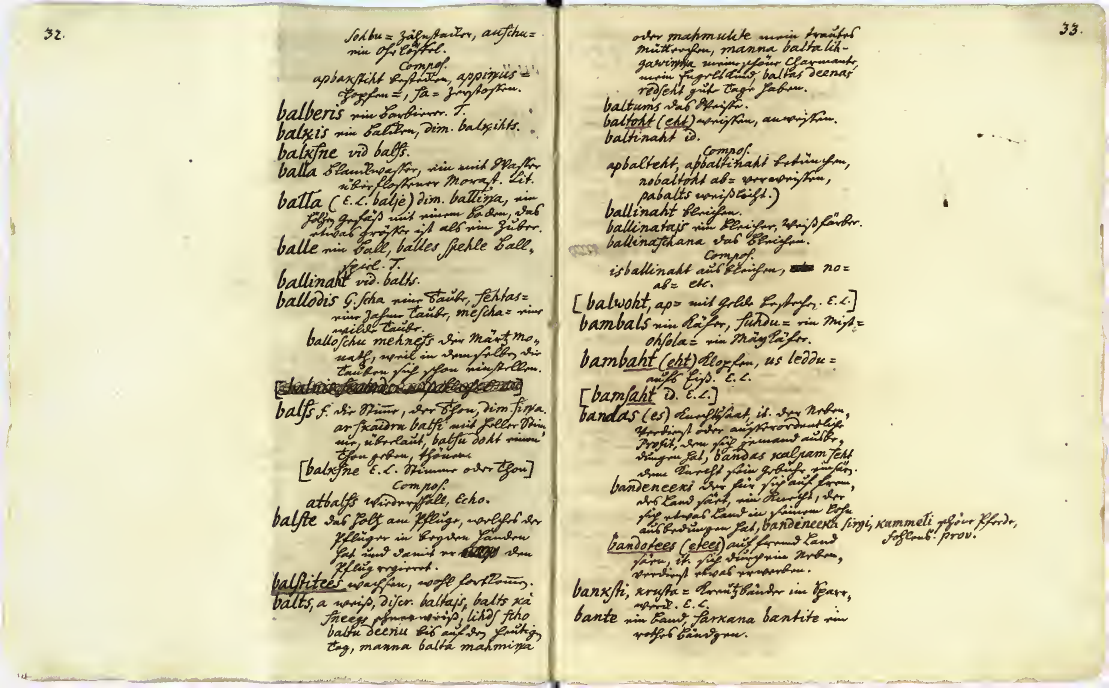 32.
sohbu= Zähnstacher, auschu=
ein Ohrlöffel.
Compos.
apbakstiht bestecken, appirkus=
Zopfen=, sa= zerstossen.
balberis ein Barbierer. T.
balkis ein Balken, dim. balkihts.
balksne vid balss.
balla Blankwasser, ein mit Wasser
überflossener Morast. Lit.
balla (E. L. balje) dim. ballina, ein
hölzn Gefäß mit einem Boden, das
etwas grösser ist als ein Zuber.
balle ein Ball, balles spehle Ball-
spiel. T.
ballinaht vid. balts.
ballodis G. scha eine Taube, sehtas=
eine zahme Taube, mescha= eine
wilde Taube.
balloschu mehness der Märtz Mo-
nath, weil in demselben die
Tauben sich schon einstellen.
balss f. die Stimme, der Thon, dim. sina.
ar skaidru balsi mit heller Stim
me, überlaut, balsu doht einen
Thon geben, thönen.
[balksne E. L. Stimme oder Thon]
Compos.
atbalss Wiederschall, Echo.
balste das Holtz am Pfluge, welches der
Pflüger in beyden Händen
hat und damit er den
Pflug regieret.
balstitees wachsen, wohl fortkomm.
balts, a weiß, discr. baltajs, balts kà
sneegs schneeweiß, lihds scho
baltu deenu bis auf den heutig
Tag, manna balta mahmina
33.
oder mahmulite mein trautes
Mütterchen, manna baltalih-
gawina meine schöne Charmante,
mein Engelskind, baltas deenas
redseht gute Tage haben.
baltums das Weisse.
baltoht (eht) weissen, anweissen.
baltinaht id.
Compos.
apbalteht, apbaltinaht betünchen,
nobaltoht ab= verweissen,
pabalts weißlicht.)
ballinaht bleichen.
ballinatajs ein Bleicher, Weißfärber.
ballinaschana das Bleichen.
Compos.
isballinaht ausbleichen, no=
ab= etc.
[balwoht, ap= mit Gelde bestechen. E. L.]
bambals ein Käfer, suhdu= ein Mist=
ohsola= ein Mäykäfer.
bambaht (eht) klopfen, us leddu=
aufs Eiß. E. L.
[bamsaht id. E. L.]
bandas (es) Knechtssaat, it. der Neben-
Verdienst oder ausserordentliche
Profit, den sich jemand ausbe-
dungen hat, bandas kalpam seht
dem Knecht sein Gebühr einsäen.
bandeneeks der für sich auf frem-
des Land säet, ein Knecht, der
sich etwas Land in seinem Lohn
ausbedungen hat, bandeneeka sirgi, kammeli schöne Pferde,
Fohlens. prov.
bandotees (etees) auf fremd Land
säen, it. sich durch ein Neben-
verdienst etwas erwerben.
banksti, krusta= Kreutzbänder im Sparr-
werk. E. L.
bante ein Band, sarkana bantite ein
rothes Bändgen.